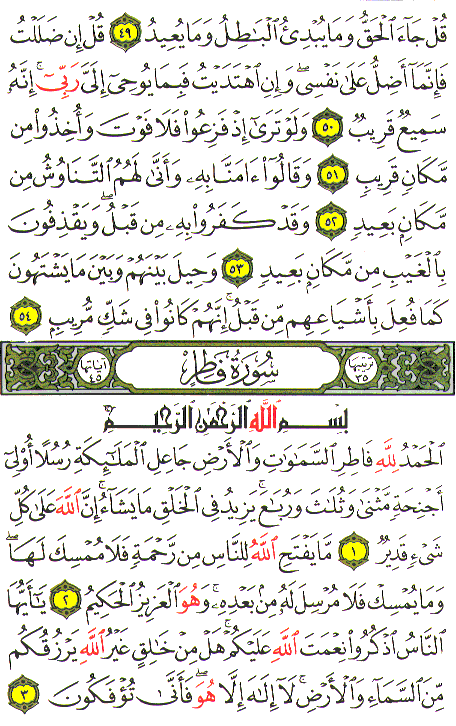 قُلْ جَآءَ ٱلْحَقُّ وَمَا يُبْدِئُ ٱلْبَـٰطِلُ وَمَا يُعِيدُ ٤٩ قُلْ إِن ضَلَلْتُ
فَإِنَّمَآ أَضِلُّ عَلَىٰ نَفْسِى ۖ وَإِنِ ٱهْتَدَيْتُ فَبِمَا يُوحِىٓ إِلَىَّ رَبِّىٓ ۚ إِنَّهُۥ
سَمِيعٌ قَرِيبٌ ٥٠ وَلَوْ تَرَىٰٓ إِذْ فَزِعُوا۟ فَلَا فَوْتَ وَأُخِذُوا۟ مِن
مَّكَانٍ قَرِيبٍ ٥١ وَقَالُوٓا۟ ءَامَنَّا بِهِۦ وَأَنَّىٰ لَهُمُ ٱلتَّنَاوُشُ مِن
مَّكَانٍۭ بَعِيدٍ ٥٢ وَقَدْ كَفَرُوا۟ بِهِۦ مِن قَبْلُ ۖ وَيَقْذِفُونَ
بِٱلْغَيْبِ مِن مَّكَانٍۭ بَعِيدٍ ٥٣ وَحِيلَ بَيْنَهُمْ وَبَيْنَ مَا يَشْتَهُونَ
كَمَا فُعِلَ بِأَشْيَاعِهِم مِّن قَبْلُ ۚ إِنَّهُمْ كَانُوا۟ فِى شَكٍّ مُّرِيبٍۭ ٥٤
ترتيبها ٣٥ سُورَةُ فَاطِرٍ آياتها ٤٥
بِسْمِ ٱللَّهِ ٱلرَّحْمَـٰنِ ٱلرَّحِيمِ
ٱلْحَمْدُ لِلَّهِ فَاطِرِ ٱلسَّمَـٰوَٰتِ وَٱلْأَرْضِ جَاعِلِ ٱلْمَلَـٰٓئِكَةِ رُسُلًا أُو۟لِىٓ
أَجْنِحَةٍ مَّثْنَىٰ وَثُلَـٰثَ وَرُبَـٰعَ ۚ يَزِيدُ فِى ٱلْخَلْقِ مَا يَشَآءُ ۚ إِنَّ ٱللَّهَ عَلَىٰ كُلِّ
شَىْءٍ قَدِيرٌ ١ مَّا يَفْتَحِ ٱللَّهُ لِلنَّاسِ مِن رَّحْمَةٍ فَلَا مُمْسِكَ لَهَا ۖ
وَمَا يُمْسِكْ فَلَا مُرْسِلَ لَهُۥ مِنۢ بَعْدِهِۦ ۚ وَهُوَ ٱلْعَزِيزُ ٱلْحَكِيمُ ٢ يَـٰٓأَيُّهَا
ٱلنَّاسُ ٱذْكُرُوا۟ نِعْمَتَ ٱللَّهِ عَلَيْكُمْ ۚ هَلْ مِنْ خَـٰلِقٍ غَيْرُ ٱللَّهِ يَرْزُقُكُم
مِّنَ ٱلسَّمَآءِ وَٱلْأَرْضِ ۚ لَآ إِلَـٰهَ إِلَّا هُوَ ۖ فَأَنَّىٰ تُؤْفَكُونَ ٣